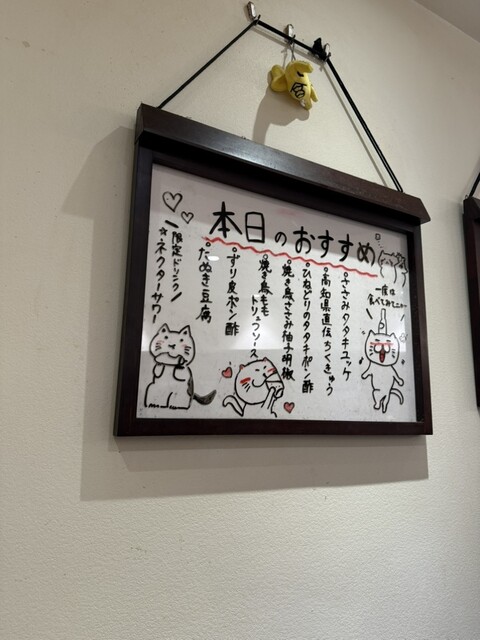 本日のおすすめ
一度は
食べてみてニャー
・ささみタタキユッケ
・高知県直伝ちくきゅう
・ひなどりのタタキポン酢
・焼き鳥ささみ柚子胡椒
・焼き鳥もも
トリュフソース
・ずり皮ポン酢
・たぬき豆腐
限定ドリンク
☆ネクターサワー